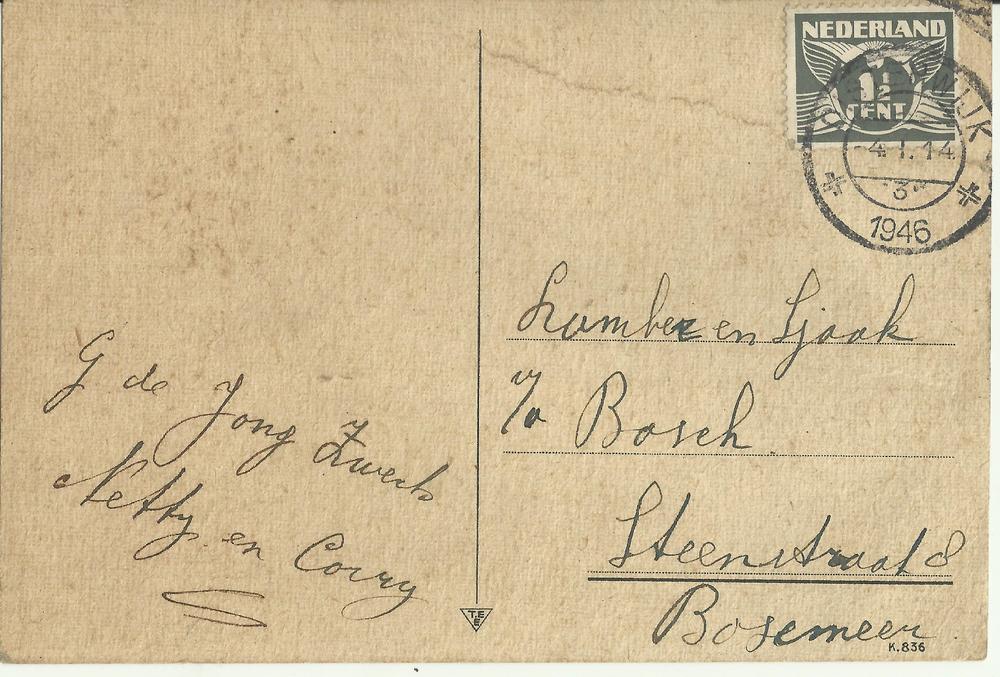 NEDERLAND
1½
CENT
WIJK
4.1.14
3
1946
G de Jong Zwerts
Netty en Corry
en Sjaak
Bosch
Steenstraat 8
Boxmeer
T.E.E
K.836